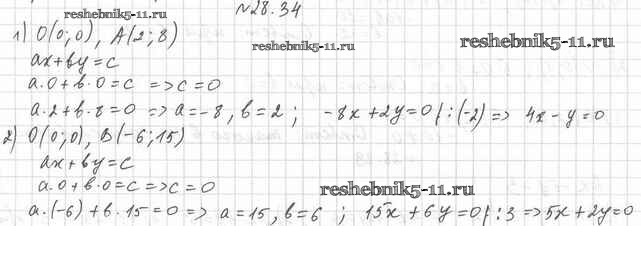 reshebnik5-11.ru
№28.34
1) O(0;0), A(2;8)
reshebnik5-11.ru
reshebnik5-11.ru
ax+by=c
a·0+в·0=c =>c=0
a·2+в·8=0 => a=-8, в=2; -8x+2y=0 /:(-2)=> 4x-y=0
2) O(0;0), B(-6;15)
ax+by=c
a·0+в·0=c=>c=0
reshebnik5-11.ru
a·(-6)+в·15=0=> a=15, в=6; 15x+6y=0/:3=>5x+2y=0